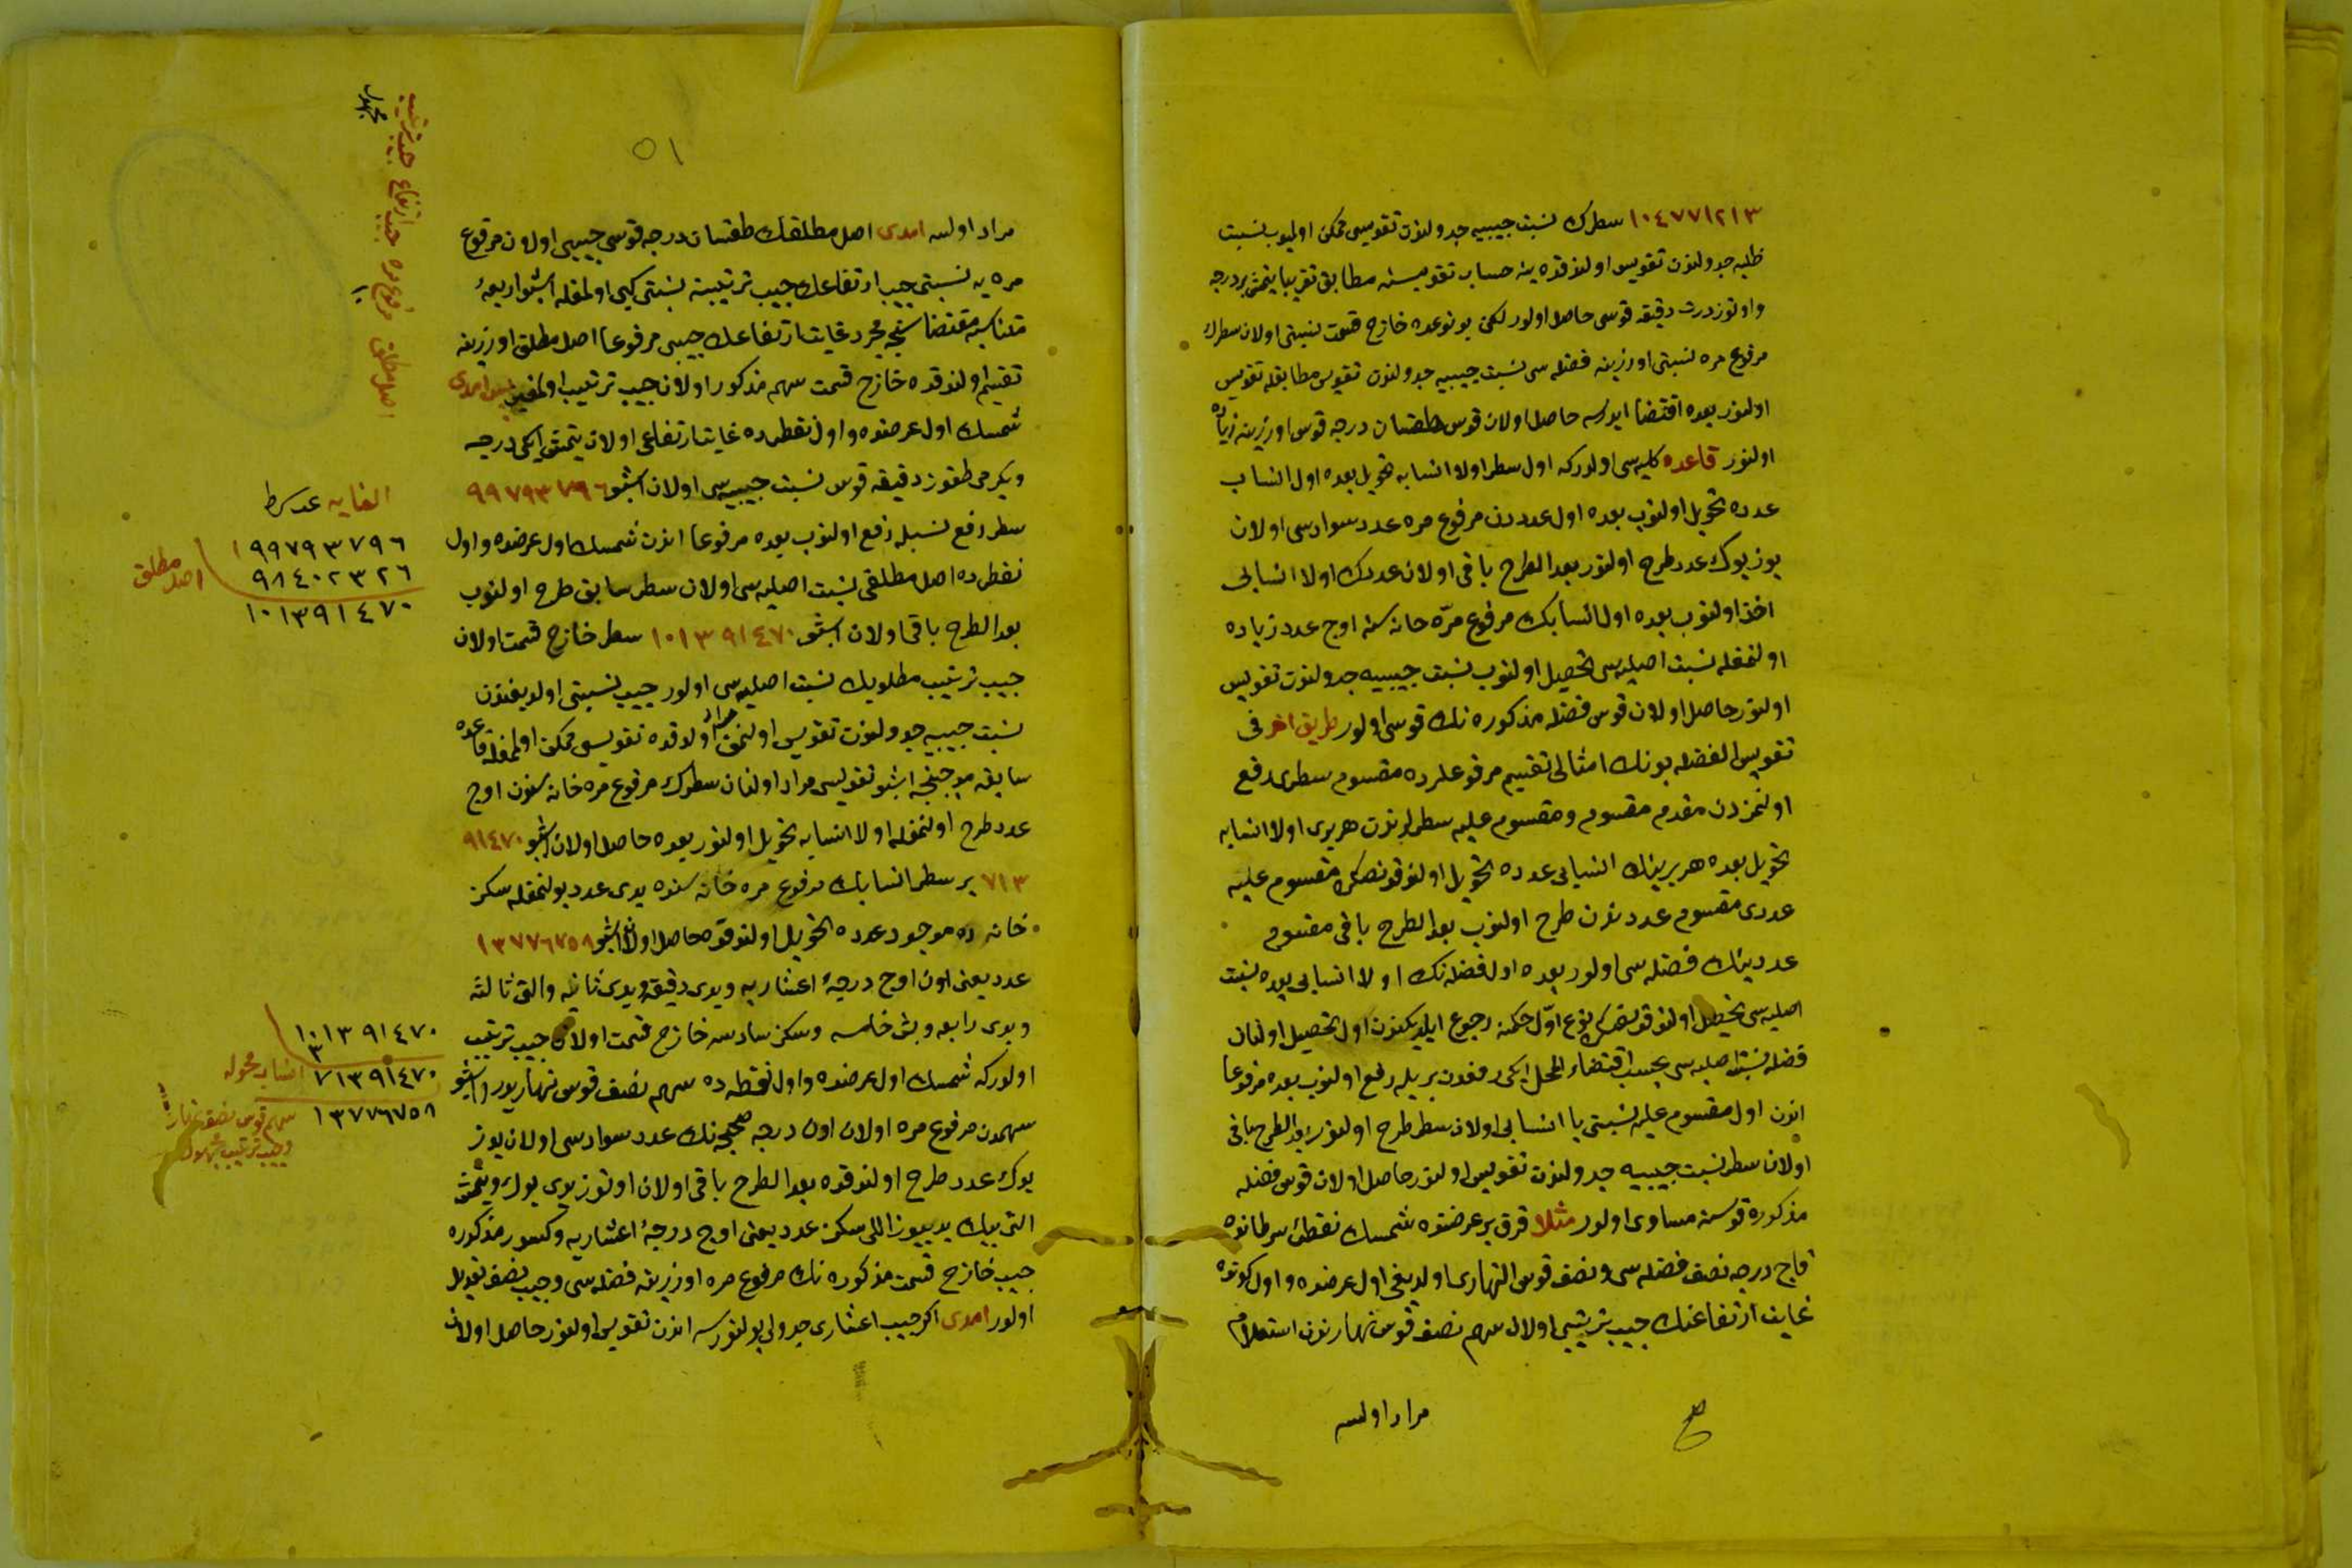 ١٠٤٧٧١٢١٣ سطرك نسبت جيبيه جدولندن تقويسى ممكن اولميوب نسبت
ظليه جدولندن تقويس اولندقده ينه حساب تقويسنه مطابق تقريبا يتمش بر درجه
واوتوز درت دقيقه قوسى حاصل اولور لكن بو نوعده خارج قسمت نسبتى اولان سطرك
مرفوع مره نسبتى اوزرينه فضله سى نسبت جيبيه جدولندن تقويس مطابقله تقويس
اولنور بعده اقتضا ايدرسه حاصل اولان قوس طقسان درجه قوس اوزرينه زياده
اولنور قاعده كليه سى اولدركه اول سطر اولا انسابه تحويل بعده اول انساب
عدده تحويل اولنوب بعده اول عدددن مرفوع مره عدد سوادسى اولان
يوز يوك عدد طرح اولنور بعد الطرح باقى اولان عددك اولا انسابى
اخذ اولنوب بعده اول انسابك مرفوع مرّه خانه سنه اوچ عدد زياده
اولنمغله نسبت اصليه سى تحصيل اولنوب نسبت جيبيه جدولندن تقويس
اولنور حاصل اولان قوس فضله مذكوره نك قوسى اولور طريق اخر فى
تقويس الفضله بونك امثالى تقسيم مرفوعلرده مقسوم سطرى رفع
اولنمزدن مقدم مقسوم ومقسوم عليه سطرلرندن هربرى اولا انسابه
تحويل بعده هر برينك انسابى عدده تحويل اولندقدنصكره مقسوم عليه
عددى مقسوم عددندن طرح اولنوب بعد الطرح باقى مقسوم
عددينك فضله سى اولور بعده اول فضله نك اولا انسابى بعده نسبت
اصليه سى تحصيل اولندقدنصكره نوع اوّل حكمنه رجوع ايلديكندن اول تحصيل اولنان
فضله نسبت اصليه سى بحسب اقتضاء المحل ايكى رفعدن بريله رفع اولنوب بعده مرفوعا
اندن اول مقسوم عليه نسبتى يا انسابى اولان سطر طرح اولنور بعد الطرح باقى
اولان سطر نسبت جيبيه جدولندن تقويس اولنور حاصل اولان قوس فضله
مذكوره قوسنه مساوى اولور مثلا قرق بر عرضنده شمسك نقطهٔ سرطاندە
قاچ درجه نصف فضله سى ونصف قوس النهارى اولديغى اول عرضده واول كونده
غايت ارتفاعنك جيب ترتيبى اولان سهم نصف قوس نهارندن استعلام
مراد اولسه
٥١
مراد اولسه امدى اصل مطلقك طقسان درجه قوسى جيبى اولان مرفوع
مره يه نسبتى جيب ارتفاعك جيب ترتيبنه نسبتى كبى اولمغله اشبو اربعهٔ
متناسبه مقتضاسنجه مجرد غايت ارتفاعك جيبى مرفوعا اصل مطلق اوزرينه
تقسيم اولندقده خارج قسمت سهم مذكور اولان جيب ترتيب اولمغين پس امدى
شمسك اول عرضده واول نقطه ده غايت ارتفاعى اولان يتمش ايكى درجه
ويكرمى طقوز دقيقه قوس نسبت جيبيه سى اولان اشبو ٩٩٧٩٣٧٩٦
سطر رفع نسبله رفع اولنوب بعده مرفوعا اندن شمسك اول عرضده واول
نقطه ده اصل مطلقى نسبت اصليه سى اولان سطر سابق طرح اولنوب
بعد الطرح باقى اولان اشبو ١٠١٣٩١٤٧٠ سطر خارج قسمت اولان
جيب ترتيب مطلوبك نسبت اصليه سى اولور جيب نسبتى اولديغندن
نسبت جيبيه جدولندن تقويس اولنمق مراد اولندقده تقويس ممكن اولمغله قاعده
سابقه موجبنجه اشبو تقويسى مراد اولنان سطرك مرفوع مره خانه سندن اوچ
عدد طرح اولنمغله اولا انسابه تحويل اولنور بعده حاصل اولان اشبو ٩١٤٧٠
٧١٣ بر سطر انسابك مرفوع مره خانه سنده يدى عدد بولنمغله سكز
خانه ده موجود عدده تحويل اولندقده حاصل اولان اشبو ١٣٧٧٦٧٥٨
عدد يعنى اون اوچ درجهٔ اعشاريه ويدى دقيقه ويدى ثانيه والتى ثالثه
ويدى رابعه وبش خامسه وسكز سادسه خارج قسمت اولان جيب ترتيب
اولوركه شمسك اول عرضده واول نقطه ده سهم نصف قوس نهاريدر واشبو
سهمدن مرفوع مره اولان اون درجه صحيحه نك عدد سوادسى اولان يوز
يوك عدد طرح اولندقده بعد الطرح باقى اولان اوتوز يدى يوك ويتمش
التى بيك يديوز اللى سكز عدد يعنى اوچ درجهٔ اعشاريه وكسور مذكوره
جيب خارج قسمت مذكوره نك مرفوع مره اوزرينه فضله سى وجيب نصف تعديل
اولور امدى اكر جيب اعشارى جدولى بولنورسه اندن تقويس اولنور حاصل اولان
اصل مطلق مرفوع مره جيب ارتفاع جيب ترتيب
مجهول
الغايه عد كط
١٩٩٧٩٣٧٩٦
٩٨٤٠٢٣٢٦ اصل مطلق
١٠١٣٩١٤٧٠
١٠١٣٩١٤٧٠
٣
٧١٣٩١٤٧٠ انساب محوله
١٣٧٧٦٧٥٨ سهم قوس نصف نهار
وجيب ترتيب مجهول